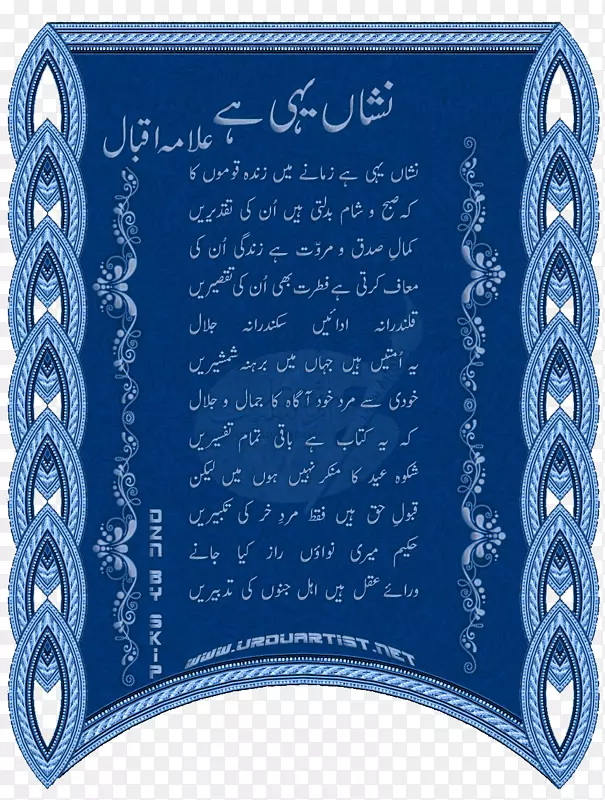 نشاں یہی ہے
علامہ اقبال
نشاں یہی ہے زمانے میں زندہ قوموں کا
کہ صبح و شام بدلتی ہیں اُن کی تقدیریں
کمالِ صدق و مروّت ہے زندگی اُن کی
معاف کرتی ہے فطرت بھی اُن کی تقصیریں
قلندرانہ ادائیں سکندرانہ جلال
یہ اُمتیں ہیں جہاں میں برہنہ شمشیریں
خودی سے مرد خود آگاہ کا جمال و جلال
کہ یہ کتاب ہے باقی تمام تفسیریں
شکوہ عید کا منکر نہیں ہوں میں لیکن
قبولِ حق ہیں فقط مردِ حُر کی تکبیریں
حکیم میری نواؤں راز کیا جانے
ورائے عقل ہیں اہل جنوں کی تدبیریں
WWW.URDUARTIST.NET
DZN BY SKIP